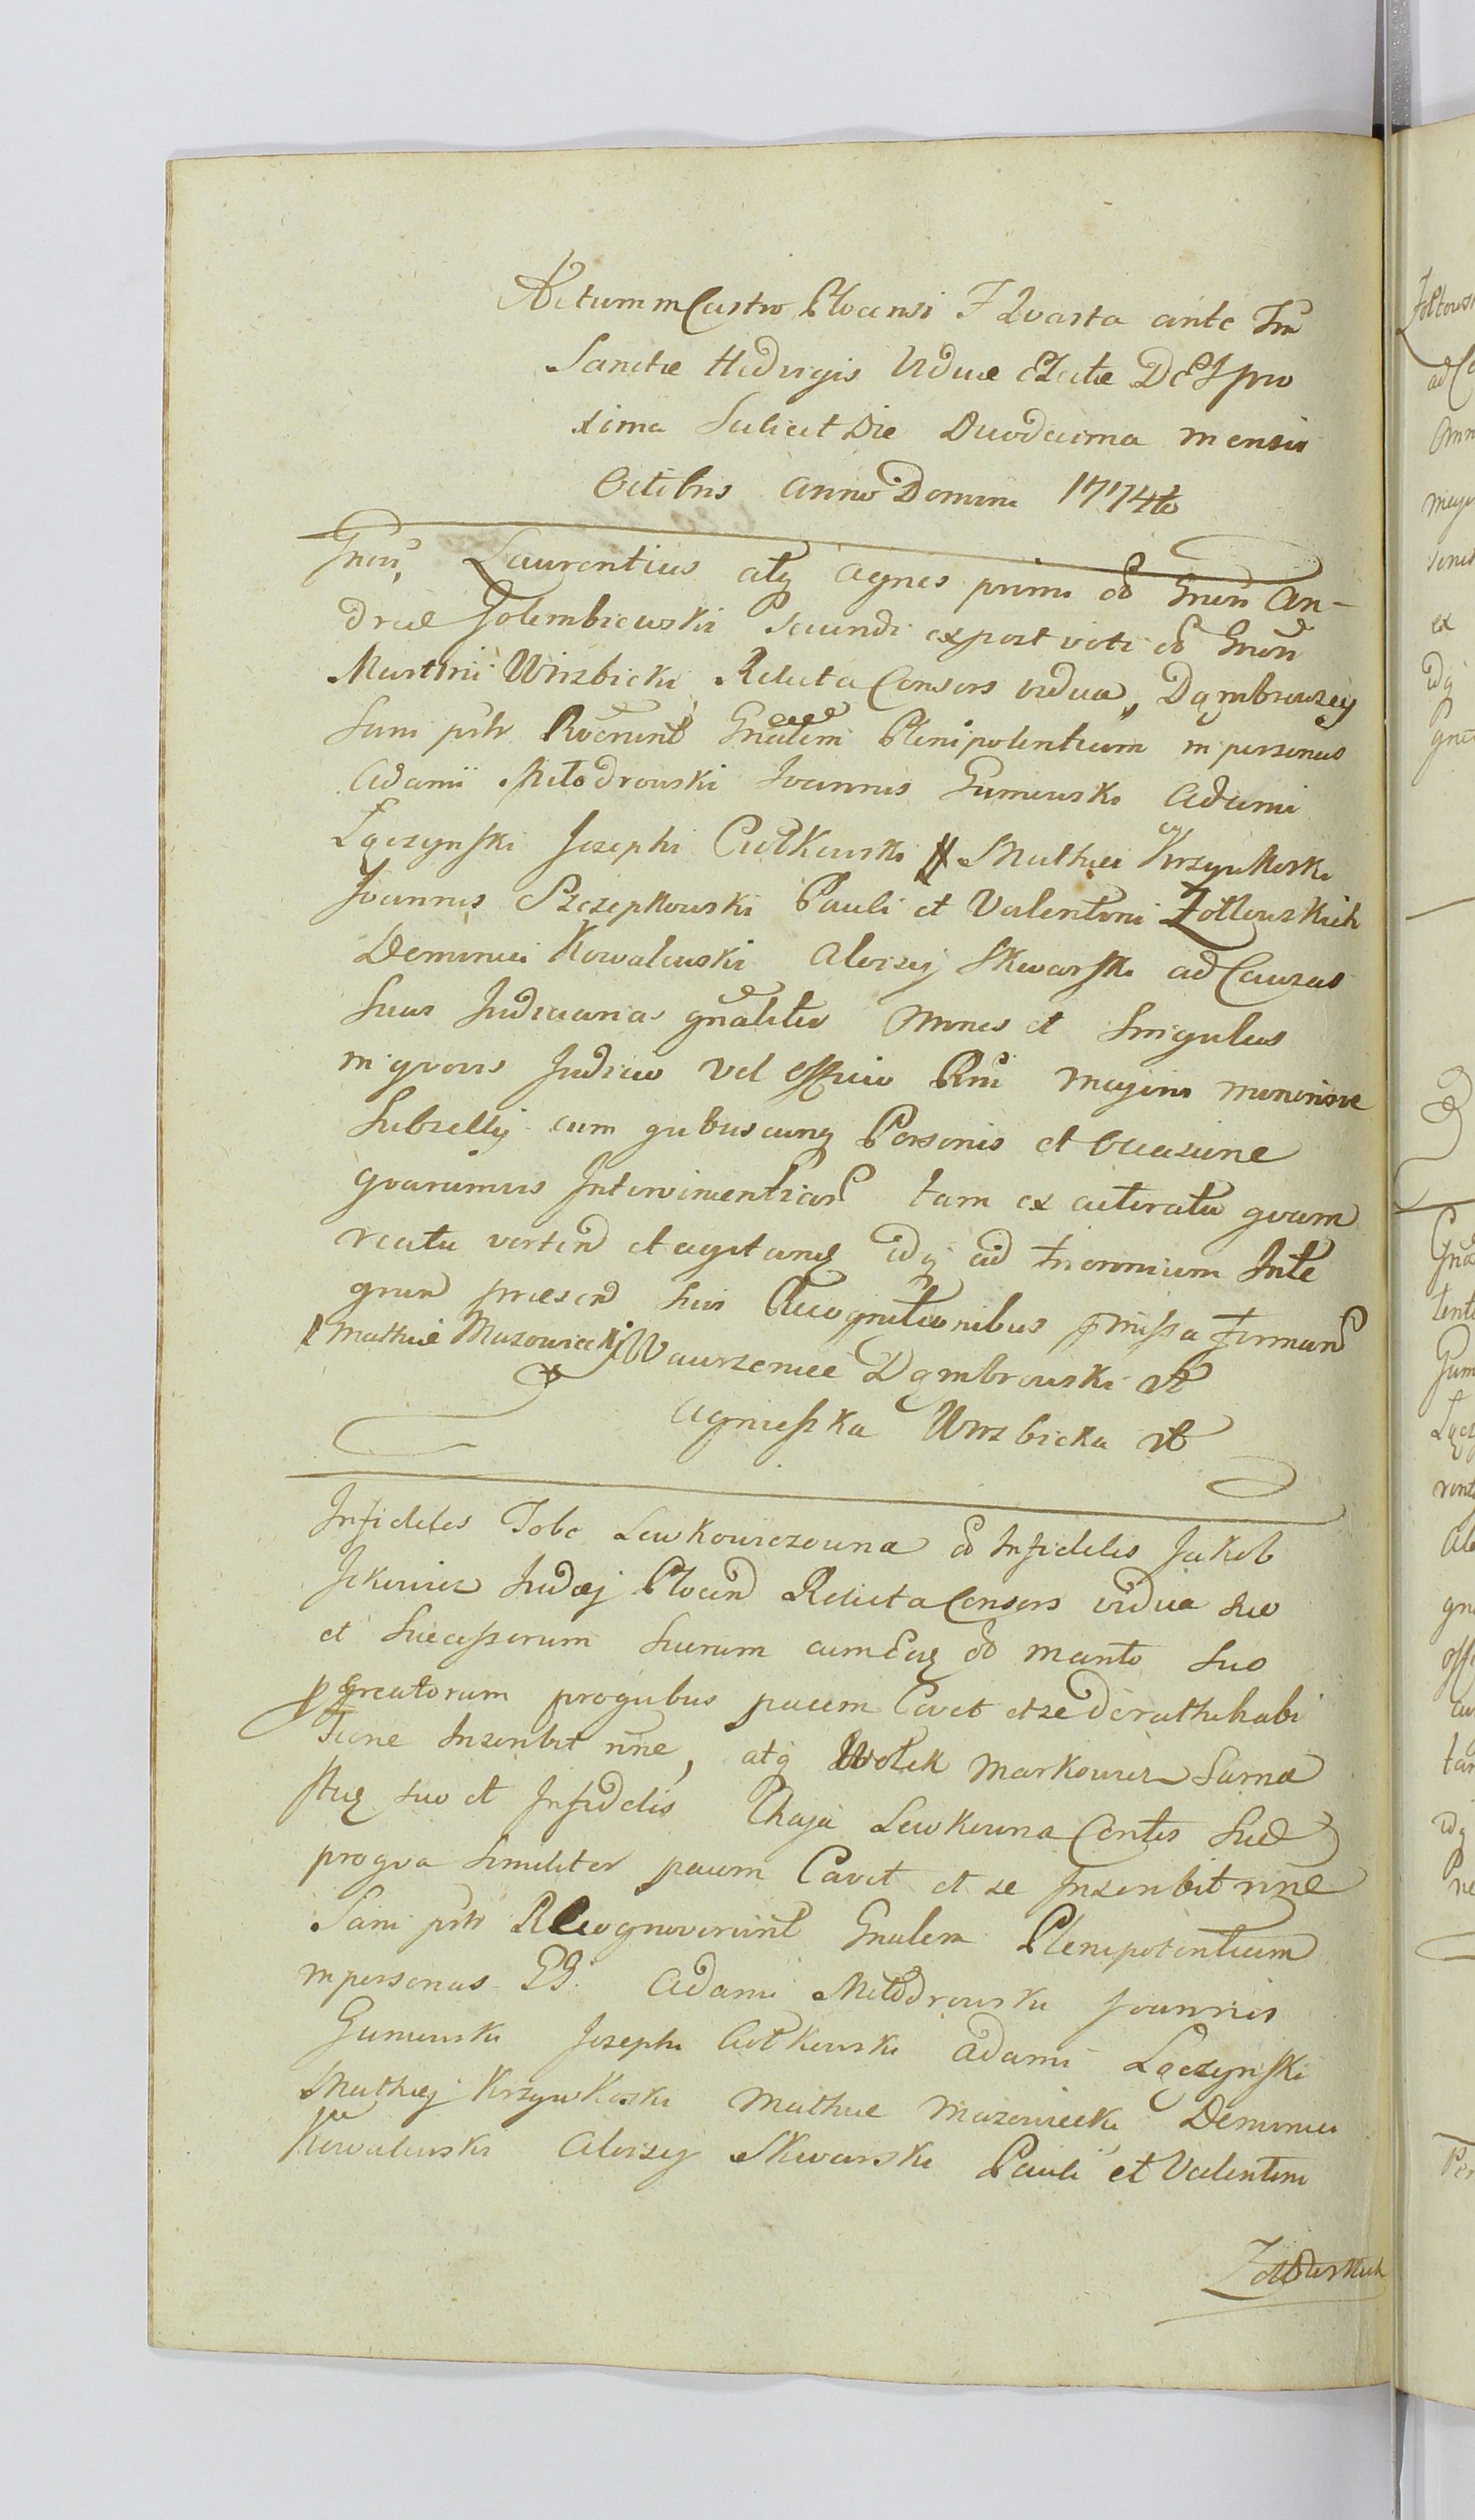 Actum in Castro Plocensi F Qvarta ante Fm
Sanctæ Hedvigis Viduæ Electæ Dei pro
xima Scilicet Die Duodecima mensis
Octobris Anno Domini 1774to
Gnosi Laurentius atq Agnes primi od Gnosi An-
dreæ Golembiewski Secundi expost voti od Gnosi
Martini Wirzbicki Relicta Consors vidua, Dąmbrowscy
Sani pstr Rocrunt Gnalem Plenipotentiam in personas
Adami Miłodrowski Joannis Gumowski Adami
Łączynski Josephi Ciołkowski Mathiei Krzywkoski
Joannis Szczepkowski Pauli et Valentini Żołtowskich
Dominici Kowalewski Aloizy Skwarski ad Causas
Suas Judiciarias gnaliter omnes et Singulas
in qvovis Judicio vel officio Rni majoris minorisve
Subsellij cum qvibuscunq Personis et occasione
qvarumvis Intervinentiar tam ex actoratu qvam
reatu verten et agitanq idq ad triennium Inte
grum præsen Suis Recognitionibus pmissa firman
Mathiæ Mazowiecki Wawrzeniec Dąmbrowski
Agnieszka Wirzbicka
Infideles Tobe Lewkowiczowna od Infidelis Jakob
Jckowicz Judæj Plocen Relicta Consors vidua suo
et Successorum Suorum cum Eoq od marito suo
pgreatorum proqvibus pacem Cavet et se de rathihabi
tione Inscribit nne, atq Wolek Markowicz Sarna
stuq suo et Infidelis Chaja Lewkowna Contis Suæ
proqva Similiter pacem Cavit et se Inscribit nne
Sani pstr Recognoverunt Gnalem Plenipotentiam
in personas GG. Adami Miłodrowski Joannis
Gumowski Josephi Ciołkowski Adami Łączynski
Mathiej Krzywkoski Mathiæ Mazowiecki Dominici
Kowalewski Aloizy Skwarski Pauli et Valentini
Żołtowskich